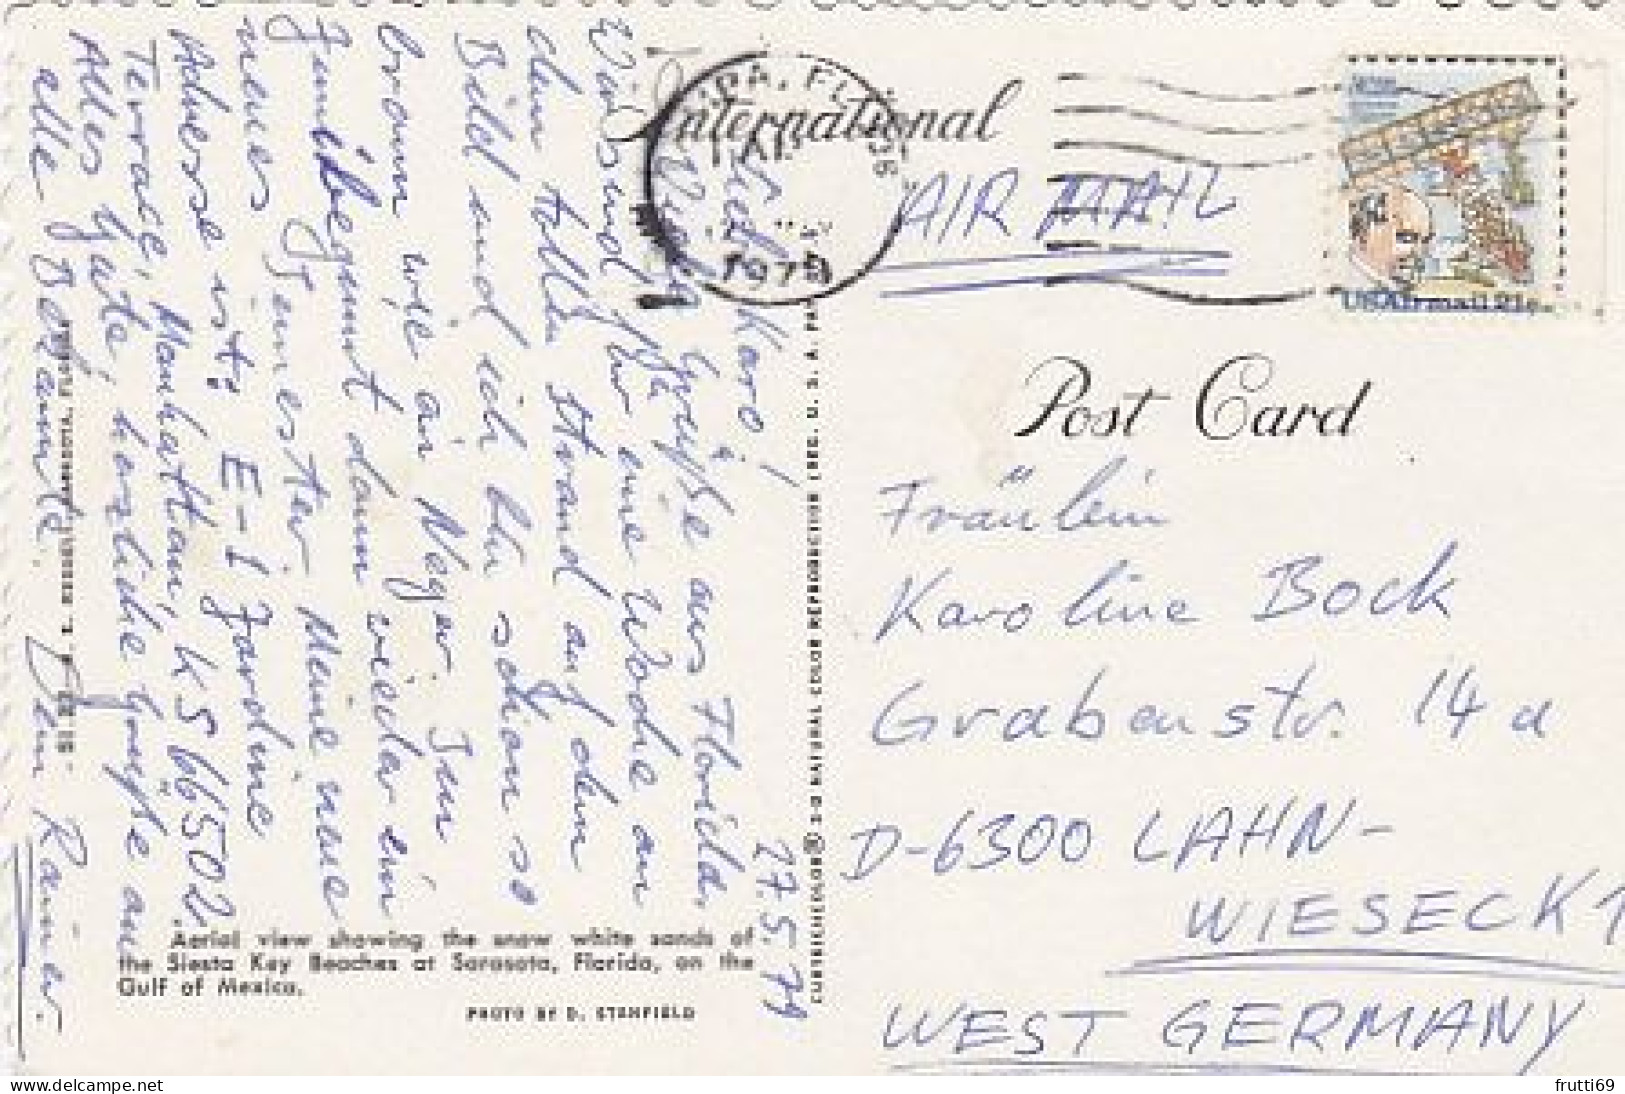 International
AIR MAIL
PA, FL
1979
USAirmail 21c
Post Card
Fräulein
Karoline Bock
Grabenstr. 14 a
D-6300 LAHN-
WIESECK 1
WEST GERMANY
27.5.79
Karo!
Viele Grüße aus Florida.
Wir sind für eine Woche an
dem tollen Strand auf dem
Bild und ich bin schon so
braun wie ein Neger. Im
Juni beginnt dann wieder ein
neues Semester. Meine neue
Adresse ist: E-1 Jardine
Terrace, Manhattan, KS 66502
Alles Gute, herzliche Grüße an
alle Bekannte.
Dein Rainer.
Aerial view showing the snow white sands of
the Siesta Key Beaches at Sarasota, Florida, on the
Gulf of Mexico.
PHOTO BY D. STENFIELD
SARASOTA, FLORIDA
CURTEICHCOLOR® 3-D NATURAL COLOR REPRODUCTION (REG. U.S.A. PAT.
frutti69